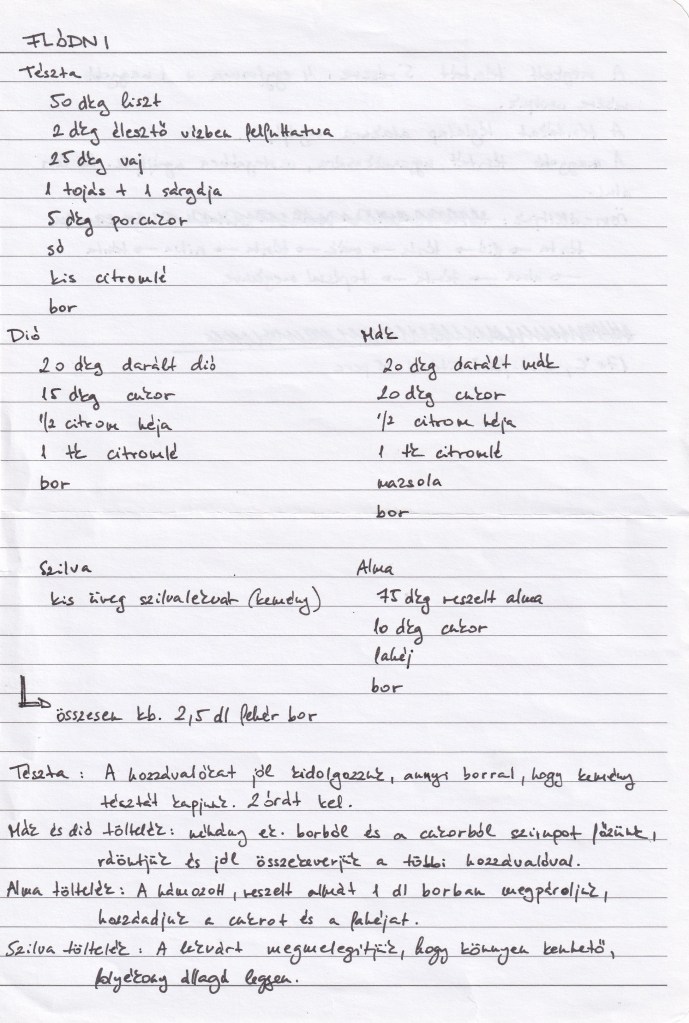 FLÓDNI
Tészta
50 dkg liszt
2 dkg élesztő vízben felfuttatva
25 dkg vaj
1 tojás + 1 sárgája
5 dkg porcukor
só
kis citromlé
bor
Dió
20 dkg darált dió
15 dkg cukor
1/2 citrom héja
1 tk citromlé
bor
Mák
20 dkg darált mák
20 dkg cukor
1/2 citrom héja
1 tk citromlé
mazsola
bor
Szilva
kis üveg szilvalekvár (kemény)
Alma
75 dkg reszelt alma
10 dkg cukor
fahéj
bor
összesen kb. 2,5 dl fehér bor
Tészta : A hozzávalókat jól kidolgozzuk, annyi borral, hogy kemény
tésztát kapjunk. 2 órát kel.
Mák és dió töltelék : néhány ek. borból és a cukorból szirupot főzünk,
ráöntjük és jól összekeverjük a többi hozzávalóval.
Alma töltelék : A hámozott, reszelt almát 1 dl borban megpároljuk,
hozzáadjuk a cukrot és a fahéjat.
Szilva töltelék : A lekvárt megmelegítjük, hogy könnyen kenhető,
folyékony állagú legyen.